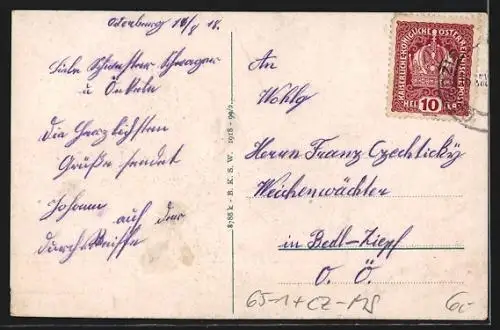 Odenburg 18/X 18.
Liebe Schwester Schwager
u Onkeln
die Herzlichsten
Grüße sendet
Johann auf der
durch Reisse
8788 k - B. K. S. W. 1918 - 99/2
KAISERLICHE KÖNIGLICHE ÖSTERREICHISCHE POST
HELLER 10
An
Wohlg
Herrn Franz Czechticky
Weichenwächter
in Bedl-Ziepf
O. Ö.
65-1+CZ-MS
6,-